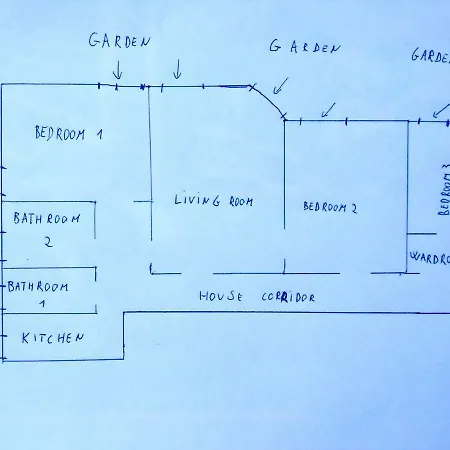 GARDEN
GARDEN
BEDROOM 1
BEDROOM 3
LIVING ROOM
BEDROOM 2
BATHROOM
2
BATHROOM
1
HOUSE CORRIDOR
KITCHEN